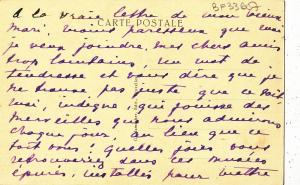 à la vraie lettre de mon vieux
BF3369
CARTE POSTALE
mari, moins paresseux que moi
je veux joindre, mes chers amis
trop lointains, un mot de
tendresse et vous dire que je
ne trouve pas juste que ce soit
moi, indigne, qui jouisse des
merveilles que nous admirons
chaque jour, au lieu que ce
soit vous ! Quelles joies vous
retrouveriez dans ces musées
épurés, installés pour mettre